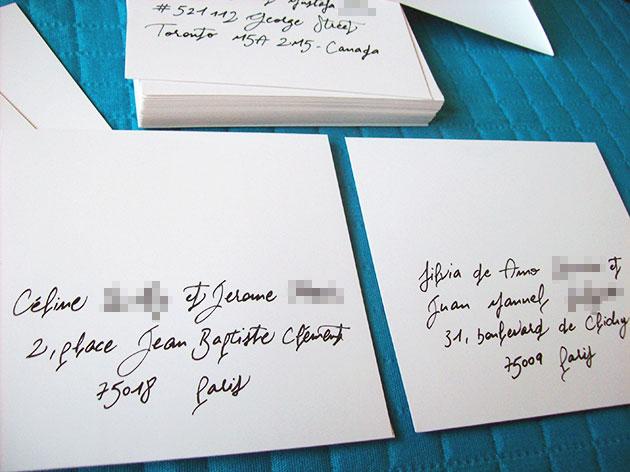 Mustafa
# 521 112 George Street
Toronto M5A 2M5 - Canada
Céline et Jerome
2, place Jean Baptiste Clément
75018 Paris
Silvia de Amo et
Juan Manuel
31, boulevard de Clichy
75009 Paris